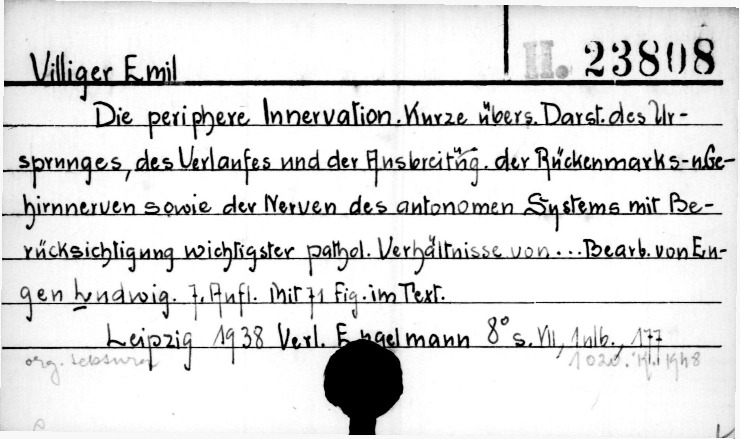 H. 23808
Villiger Emil
Die periphere Innervation. Kurze übers. Darst. des Ur-
sprunges, des Verlaufes und der Ausbreitũg. der Rückenmarks-u Ge-
hirnnerven sowie der Nerven des autonomen Systems mit Be-
rücksichtigung wichtigster pathol. Verhältnisse von ... Bearb. von Eu-
gen Ludwig. 7. Aufl. Mit 71 Fig. im Text.
Leipzig 1938 Verl. Engelmann 8° s. VII, 1 nlb., 177
org.